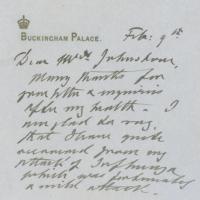 BUCKINGHAM PALACE.
Feb: 9th
Dear Mrs Johnstone,
Many thanks for
your letter & inquiries
after my health. I
am glad to say,
that I have quite
recovered from my
attack of Influenza
which was fortunately
a mild attack.